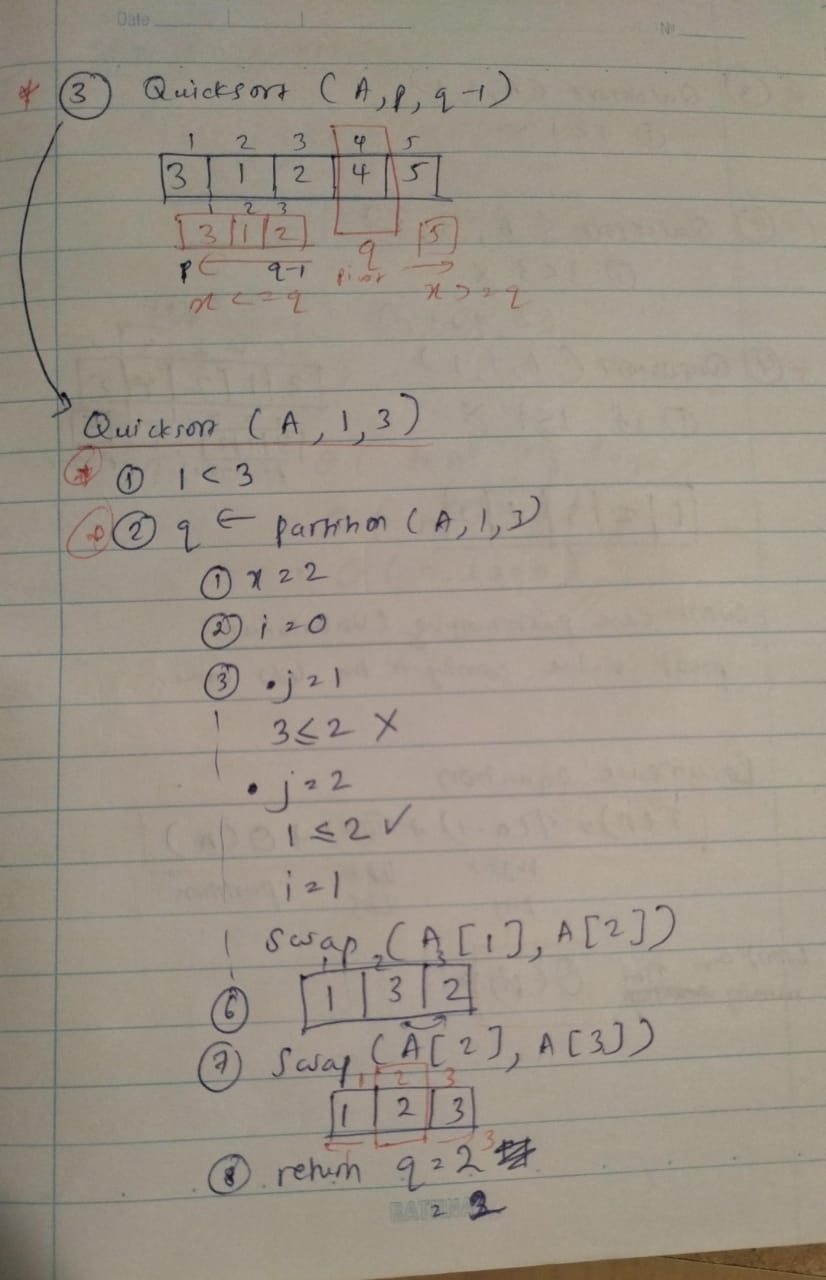 Date
No
* ③ Quicksort (A, p, q-1)
1 2 3 4 5
3 1 2 4 5
1 2 3
3 1 2
5
p q-1 q
pivot
x <= q x >= q
Quicksort (A, 1, 3)
* ① 1 < 3
② q ← partition (A, 1, 3)
① x = 2
② i = 0
③ • j = 1
3 ≤ 2 X
• j = 2
1 ≤ 2 ✓
i = 1
Swap (A[1], A[2])
1 2 3
⑥ 1 3 2
⑦ Swap (A[2], A[3])
1 2 3
1 2 3
3
⑧ return q = 2